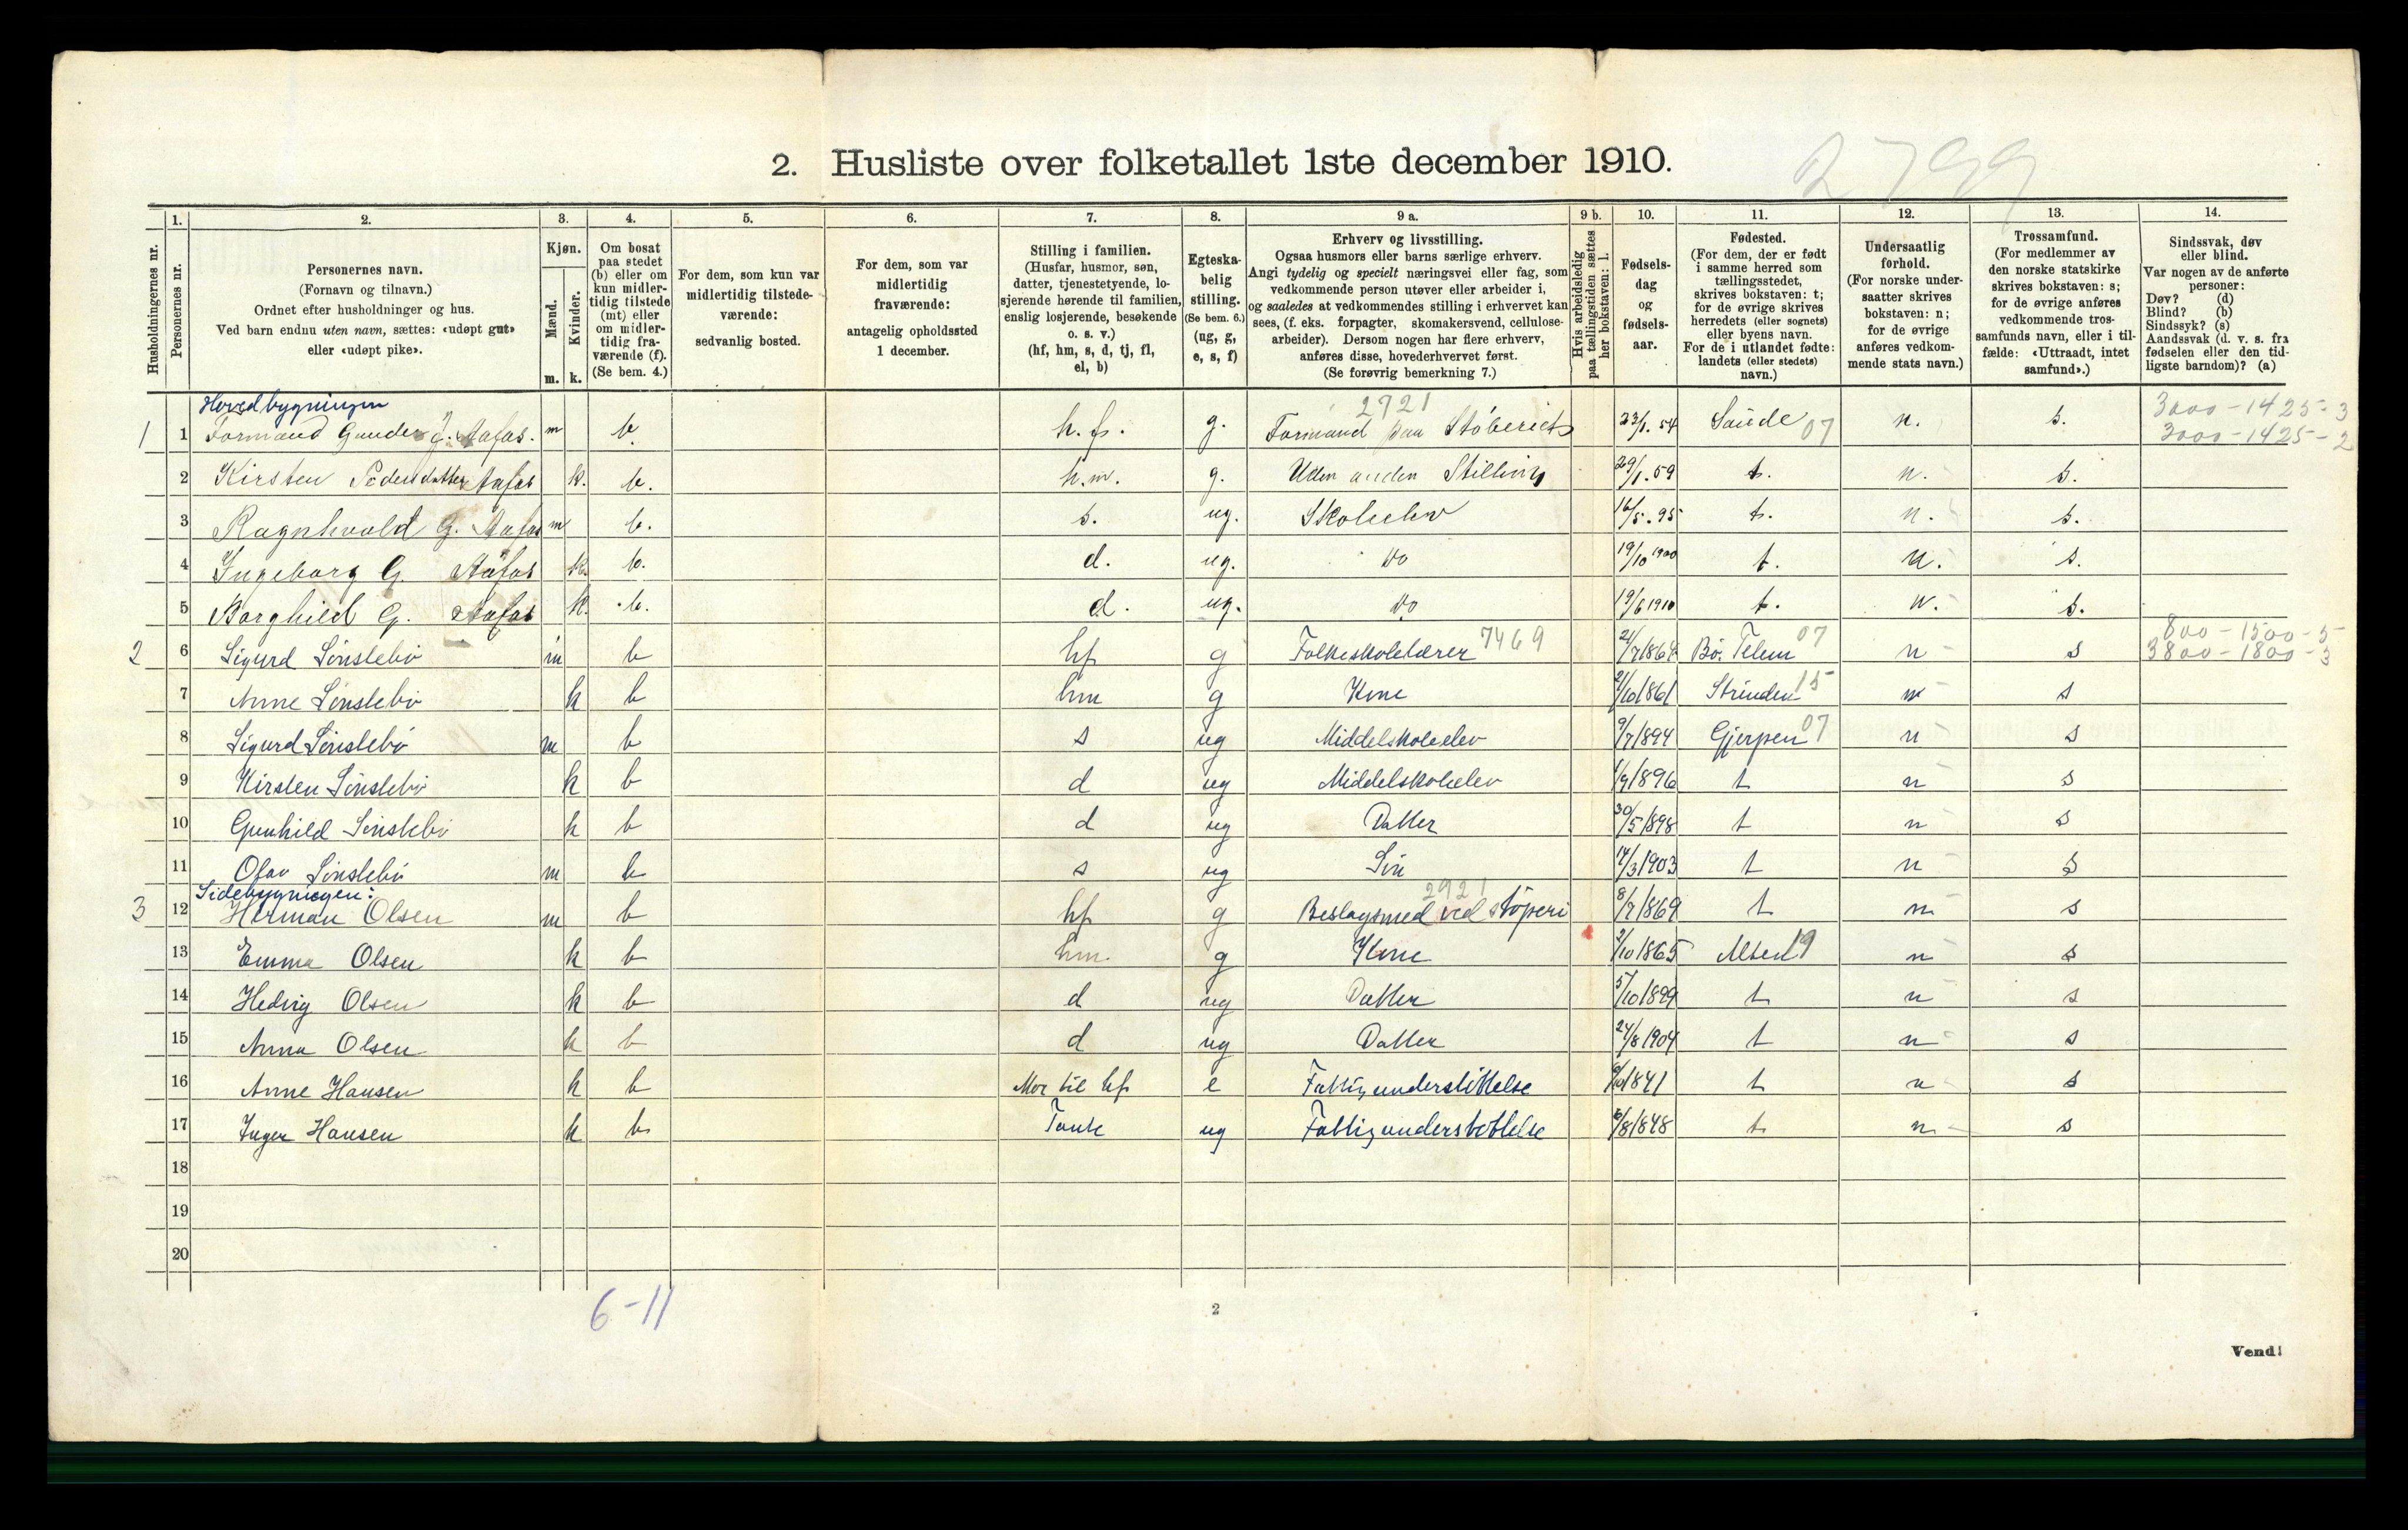 2. Husliste over folketallet 1ste december 1910.
2799
Husholdningernes nr.
1. Personernes nr.
2. Personernes navn. (Fornavn og tilnavn.) Ordnet efter husholdninger og hus. Ved barn endnu uten navn, sættes: «udøpt gut» eller «udøpt pike».
3. Kjøn. Mænd. m. Kvinder. k.
4. Om bosat paa stedet (b) eller om kun midlertidig tilstede (mt) eller om midlertidig fraværende (f). (Se bem. 4.)
5. For dem, som kun var midlertidig tilstedeværende: sedvanlig bosted.
6. For dem, som var midlertidig fraværende: antagelig opholdssted 1 december.
7. Stilling i familien. (Husfar, husmor, søn, datter, tjenestetyende, losjerende hørende til familien, enslig losjerende, besøkende o. s. v.) (hf, hm, s, d, tj, fl, el, b)
8. Egteskabelig stilling. (Se bem. 6.) (ug, g, e, s, f)
9 a. Erhverv og livsstilling. Ogsaa husmors eller barns særlige erhverv. Angi tydelig og specielt næringsvei eller fag, som vedkommende person utøver eller arbeider i, og saaledes at vedkommendes stilling i erhvervet kan sees, (f. eks. forpagter, skomakersvend, cellulosearbeider). Dersom nogen har flere erhverv, anføres disse, hovederhvervet først. (Se forøvrig bemerkning 7.)
9 b. Hvis arbeidsledig paa tællingstiden sættes her bokstaven: l.
10. Fødselsdag og fødselsaar.
11. Fødested. (For dem, der er født i samme herred som tællingsstedet, skrives bokstaven: t; for de øvrige skrives herredets (eller sognets) eller byens navn. For de i utlandet fødte: landets (eller stedets) navn.)
12. Undersaatlig forhold. (For norske undersaatter skrives bokstaven: n; for de øvrige anføres vedkommende stats navn.)
13. Trossamfund. (For medlemmer av den norske statskirke skrives bokstaven: s; for de øvrige anføres vedkommende trossamfunds navn, eller i tilfælde: «Uttraadt, intet samfund».)
14. Sindssvak, døv eller blind. Var nogen av de anførte personer: Døv? (d) Blind? (b) Sindssyk? (s) Aandssvak (d. v. s. fra fødselen eller den tidligste barndom)? (a)
Hovedbygningen 2721 3000-1425-3
1 1 Formand Gunder J. Aafos. m b. h. f. g. Formand paa Støberiet 23/1.54 Saude 07 n. s. 3000-1425-2
2 Kirsten Pedersdatter Aafos k. b. h.m. g. Uden anden Stilling 29/1.59 t. n. s.
3 Ragnhvald G. Aafos m b. s. ug. Skoleelev 16/5.95 t. n. s.
4 Ingeborg G. Aafos k. b. d. ug. Do 19/10 1900 t. n. s.
5 Borghild G. Aafos k. b. d. ug. Do 19/6 1910 t. n. s.
800-1500-5
2 6 Sigurd Sønslebø m b hf g Folkeskolelærer 7469 21/7 1864 Bø. Telem 07 n s 3800-1800-3
7 Anne Sønslebø k b hm g Kone /10 1861 Strinden 15 n s
8 Sigurd Sønslebø m b s ug Middelskoleelev 9/7 1894 Gjerpen 07 n s
9 Kirsten Sønslebø k b d ug Middelskoleelev 1/9 1896 t n s
10 Gunhild Sønslebø k b d ug Datter 30/5 1898 t n s
11 Olav Sønslebø m b s ug Søn 14/3 1903 t n s
Sidebygningen: 2921
3 12 Herman Olsen m b hf g Beslagsmed ved støperi 8/7 1869 t n s
13 Emma Olsen k b hm g Kone 2/10 1865 Alsen 19 n s
14 Hedvig Olsen k b d ug Datter 5/10 1899 t n s
15 Anna Olsen k b d ug Datter 24/8 1904 t n s
16 Anne Hansen k b Mor til hf e Fattigunderstøttelse /10 1841 t n s
17 Inger Hansen k b Tante ug Fattigunderstøttelse 6/8 1848 t n s
18
19
20
6-11
2
Vend!